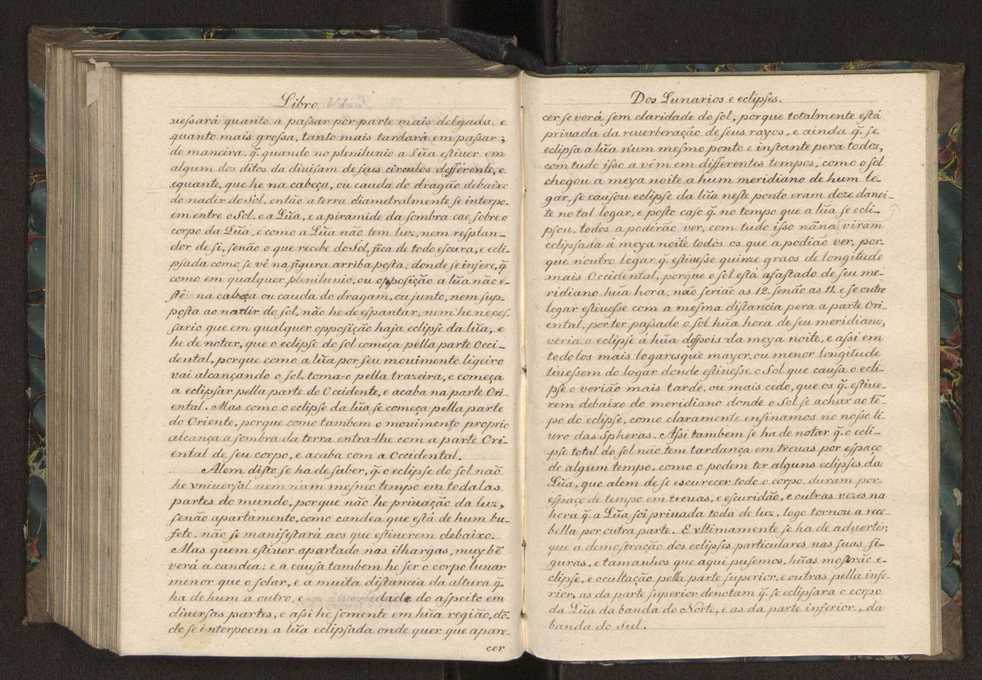 Libro
uessará quanto á passar por parte mais delgada, e
quanto mais grossa, tanto mais tardará em passar;
de maneira, q̃ quando no plenilunio a Lũa estiuer em
algum dos ditos da diuisam de seus circulos defferente, e
quante, que he na cabeça, ou cauda do dragão debaixo
do nadir do Sol, então a terra diametralmente se interpo-
em entre o Sol, e a Lũa, e a piramide da sombra cae sobre o
corpo da Lũa, e como a Lũa não tem luz, nem resplan-
dor de si, senão o que recebe do Sol, fica de todo escura, e ecli-
psada como se vê na figura arriba posta; donde se infere, q̃
como em qualquer plenilunio, ou opposição a lũa não e-
stê na cabeça ou cauda do dragam, ou junto, nem sup-
posta ao nadir do sol, não he de espantar, nem he neces-
sario que em qualquer opposição haja eclipse da lũa, e
he de notar, que o eclipse do sol começa pella parte Occi-
dental, porque como a lũa por seu mouimento ligeiro
vai alcançando o sol, toma-o pella trazeira, e começa
a eclipsar pella parte do Occidente, e acaba na parte Ori-
ental. Mas como o eclipse da lũa se começa pella parte
do Oriente, porque como tambem o mouimento proprio
alcança a sombra da terra entra-lhe com a parte Ori-
ental de seu corpo, e acaba com a Occidental.
Alem disto se ha de saber, q̃ o eclipse do sol naõ
he vniuersal nem num mesmo tempo em todalas
partes do mundo, porque não he priuação da luz,
senão apartamento, como candea que está de hum bu-
fete, não se manifestará aos que estiuerem debaixo.
Mas quem estiuer apartado nas ilhargas, muy bẽ
verá a candea; e a causa tambem he ser o corpo lunar
menor que o solar, e a muita distancia da altura q̃
ha de hum a outro, e dade do aspeito em
diuersas partes, e assi he somente em hũa região, dõ-
de se interpoem a lũa eclipsada onde quer que apar-
cer
Dos Lunarios e eclipses.
cer se verá sem claridade do sol, porque totalmente está
priuada da reuerberação de seus rayos, e ainda q̃ se
eclipsa a lũa num mesmo ponto e instante pera todos,
com tudo isso a vim em differentes tempos, como o sol
chegou a meya noite a hum meridiano de hum lu-
gar, se causou eclipse da lũa neste ponto eram doze da noi-
te no tal logar, e posto caso q̃ no tempo que a lũa se ecli-
psou, todos a poderão ver, com tudo isso não a viram
eclipsada á meya noite todos os que a podião ver, por-
que noutro logar q̃ estiuesse quinze graos de longitude
mais Occidental, porque o sol está afastado de seu me-
ridiano hũa hora, não serião as 12. senão as 11. e se outro
logar estiuesse com a mesma distancia pera a parte Ori-
ental, por ter passado o sol hũa hora de seu meridiano,
veria o eclipse á hũa despois da meya noite, e assi em
todolos mais logares que mayor, ou menor longitude
tiuessem do logar donde estiuesse o Sol que causa o ecli-
pse o verião mais tarde, ou mais cedo, que os q̃ estiue-
rem debaixo do meridiano donde o Sol se achar ao tẽ-
po do eclipse, como claramente insinamos no nosso li-
uro das Spheras. Assi tambem se ha de notar q̃ o ecli-
pse total do sol não tem tardança em treuas por espaço
de algum tempo, como o podem ter alguns eclipses da
Lũa, que alem de se escurecer todo o corpo, duram por
espaço de tempo em treuas, e escuridão, e outras vezes na
hora q̃ a Lũa foi priuada toda de luz, logo tornou a rece-
bella por outra parte. E vltimamente se ha de aduerter,
que a demostração dos eclipses particulares nas suas fi-
guras, e tamanhos que aqui pusemos, hũas mostrão e-
clipse, e occultação pella parte superior, e outras pella infe-
rior, as da parte superior denotam q̃ se eclipsara o corpo
da Lũa da banda do Norte, e as da parte inferior, da
banda do Sul.